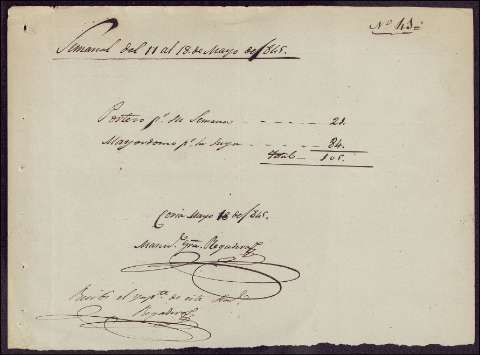 Nº 43=
Semanal del 11 al 18 de Mayo de 1845.
Portero pr. su Semana - - - - - - 21.
Mayordomo pr. la suya - - - - - 84.
Total - 105.
Coria Mayo 18 de 1845.
Manul. Regudera
Recibí el impte. de este